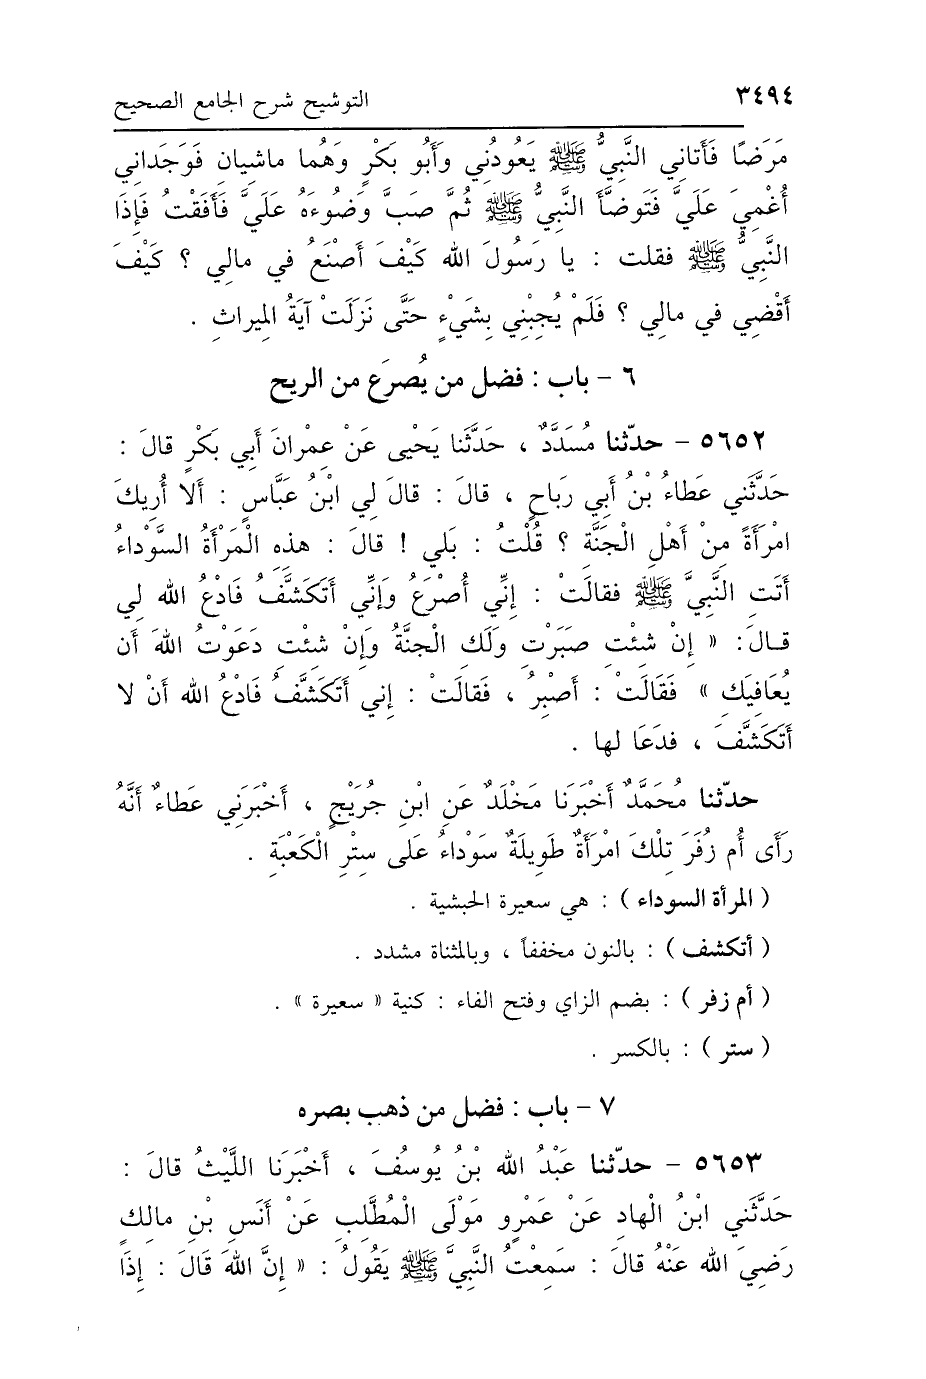 ٣٤٩٤ التوشيح شرح الجامع الصحيح
مَرَضًا فَأَتاني النَّبيُّ ﷺ يَعُودُنِي وأَبُو بَكْرٍ وَهُما ماشيانِ فَوَجَداني
أُغْمِيَ عَلَيَّ فَتَوضَّأَ النَّبيُّ ﷺ ثُمَّ صَبَّ وَضُوءَهُ عَلَيَّ فَأَفَقْتُ فَإِذَا
النَّبِيُّ ﷺ فقلت : يا رَسُولَ الله كَيْفَ أَصْنَعُ في مالِي ؟ كَيْفَ
أَقْضِي في مالِي ؟ فَلَمْ يُجِبْنِي بِشَيْءٍ حَتَّى نَزَلَتْ آيَةُ المِيراثِ .
٦ - باب : فضل من يُصرَع من الريح
٥٦٥٢ - حدّثنا مُسَدَّدٌ ، حَدَّثَنا يَحْيى عَنْ عِمْرانَ أَبي بَكْرٍ قالَ :
حَدَّثَني عَطاءُ بْنُ أَبي رَباحٍ ، قالَ : قالَ لِي ابْنُ عَبَّاسٍ : أَلا أُرِيكَ
امْرَأَةً مِنْ أَهْلِ الْجَنَّةِ ؟ قُلْتُ : بَلي ! قالَ : هذه الْمَرْأَةُ السَّوْداءُ
أَتَتِ النَّبِيَّ ﷺ فقالَتْ : إِنِّي أُصْرَعُ وَإِنِّي أَتَكَشَّفُ فَادْعُ الله لي
قـالَ: « إِنْ شئْت صَبَرْتِ وَلَك الْجنَّةُ وَإِنْ شئْت دَعَوْتُ اللهَ أَن
يُعَافِيَك » فَقَالَتْ : أَصْبِرُ ، فَقالَتْ : إِني أَتَكَشَّفُ فَادْعُ الله أَنْ لا
أَتَكَشَّفَ ، فدَعَا لها .
حدّثنا مُحَمَّدٌ أَخْبَرَنَا مَخْلَدٌ عَنِ ابْنِ جُرَيْجٍ ، أَخْبَرَنِي عَطاءٌ أَنَّهُ
رَأَى أُم زُفَرَ تِلْكَ امْرَأَةٌ طَوِيلَةٌ سَوْداءُ عَلى سِتْرِ الْكَعْبَةِ .
( المرأة السوداء ) : هي سعيرة الحبشية .
( أتكشف ) : بالنون مخففاً ، وبالمثناة مشدد .
( أم زفر ) : بضم الزاي وفتح الفاء : كنية « سعيرة » .
( ستر ) : بالكسر .
٧ - باب : فضل من ذهب بصره
٥٦٥٣ - حدّثنا عَبْدُ الله بْنُ يُوسُفَ ، أَخْبَرَنَا اللَّيْثُ قالَ :
حَدَّثَني ابْنُ الْهادِ عَنْ عَمْرٍو مَوْلَى الْمُطَّلِبِ عَنْ أَنَسِ بْنِ مالِكٍ
رَضِيَ الله عَنْهُ قالَ : سَمِعْتُ النَّبِيَّ ﷺ يَقُولُ : « إِنَّ اللهَ قَالَ : إِذَا